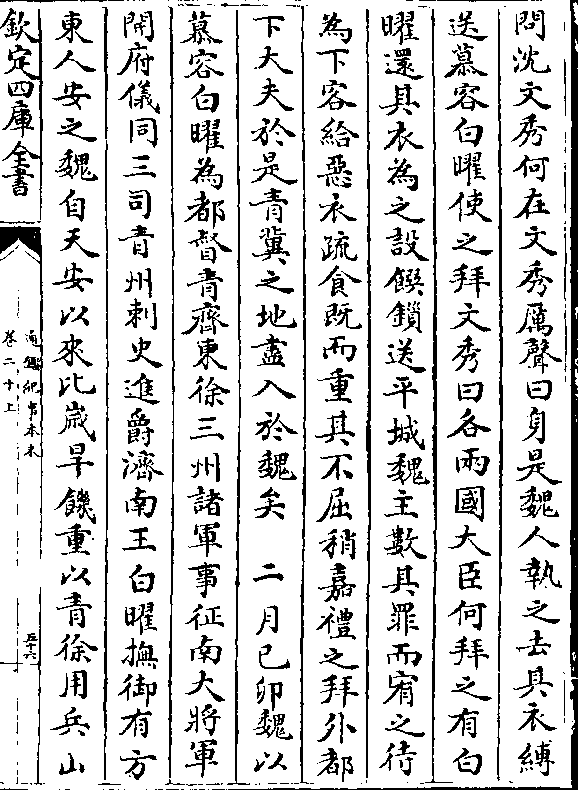 問沈文秀何在文秀厲聲曰身是魏人執之去其衣縛
送慕容白曜使之拜文秀曰各兩國大臣何拜之有白
曜還其衣為之設饌鎖送平城魏主數其罪而宥之待
為下客給惡衣疏食既而重其不屈稍嘉禮之拜外都
下大夫於是青冀之地盡入於魏矣　二月己卯魏以
慕容白曜為都督青齊東徐三州諸軍事征南大將軍
開府儀同三司青州刺史進爵濟南王白曜撫御有方
東人安之魏自天安以來比歲旱饑重以青徐用兵山
欽定四庫全書
通鑑紀事本末
卷二十上
五十六